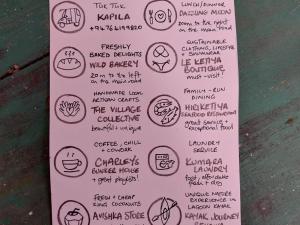 TUK TUK
KAPILA
FRESHLY
BAKED DELIGHTS
WILD BAKERY
20m to the left
on the main road
HANDMADE LOCAL
ARTISAN CRAFTS
THE VILLAGE
COLLECTIVE
beautiful + unique
COFFEE, CHILL
+ COWORK
CHARLEY'S
BUNKER HOUSE
+ great playlists!
FRESH & CHEAP
KING COCONUTS
AVISHKA STORE
LUNCH/DINNER
DAZZLING MOON
20m to the right
on the main road
SUSTAINABLE
CLOTHING, LIFESTYLE
+ SWIMWEAR
LE KETIYA
BOUTIQUE
must-visit!
FAMILY-RUN
DINING
HIRIKETIYA
SEAFOOD RESTAURANT
great service +
exceptional food
LAUNDRY
SERVICE
KUMARA
LAUNDRY
fast, affordable
UNIQUE NATURE
EXPERIENCE IN
LAGOON KAYAK
KAYAK JOURNEY